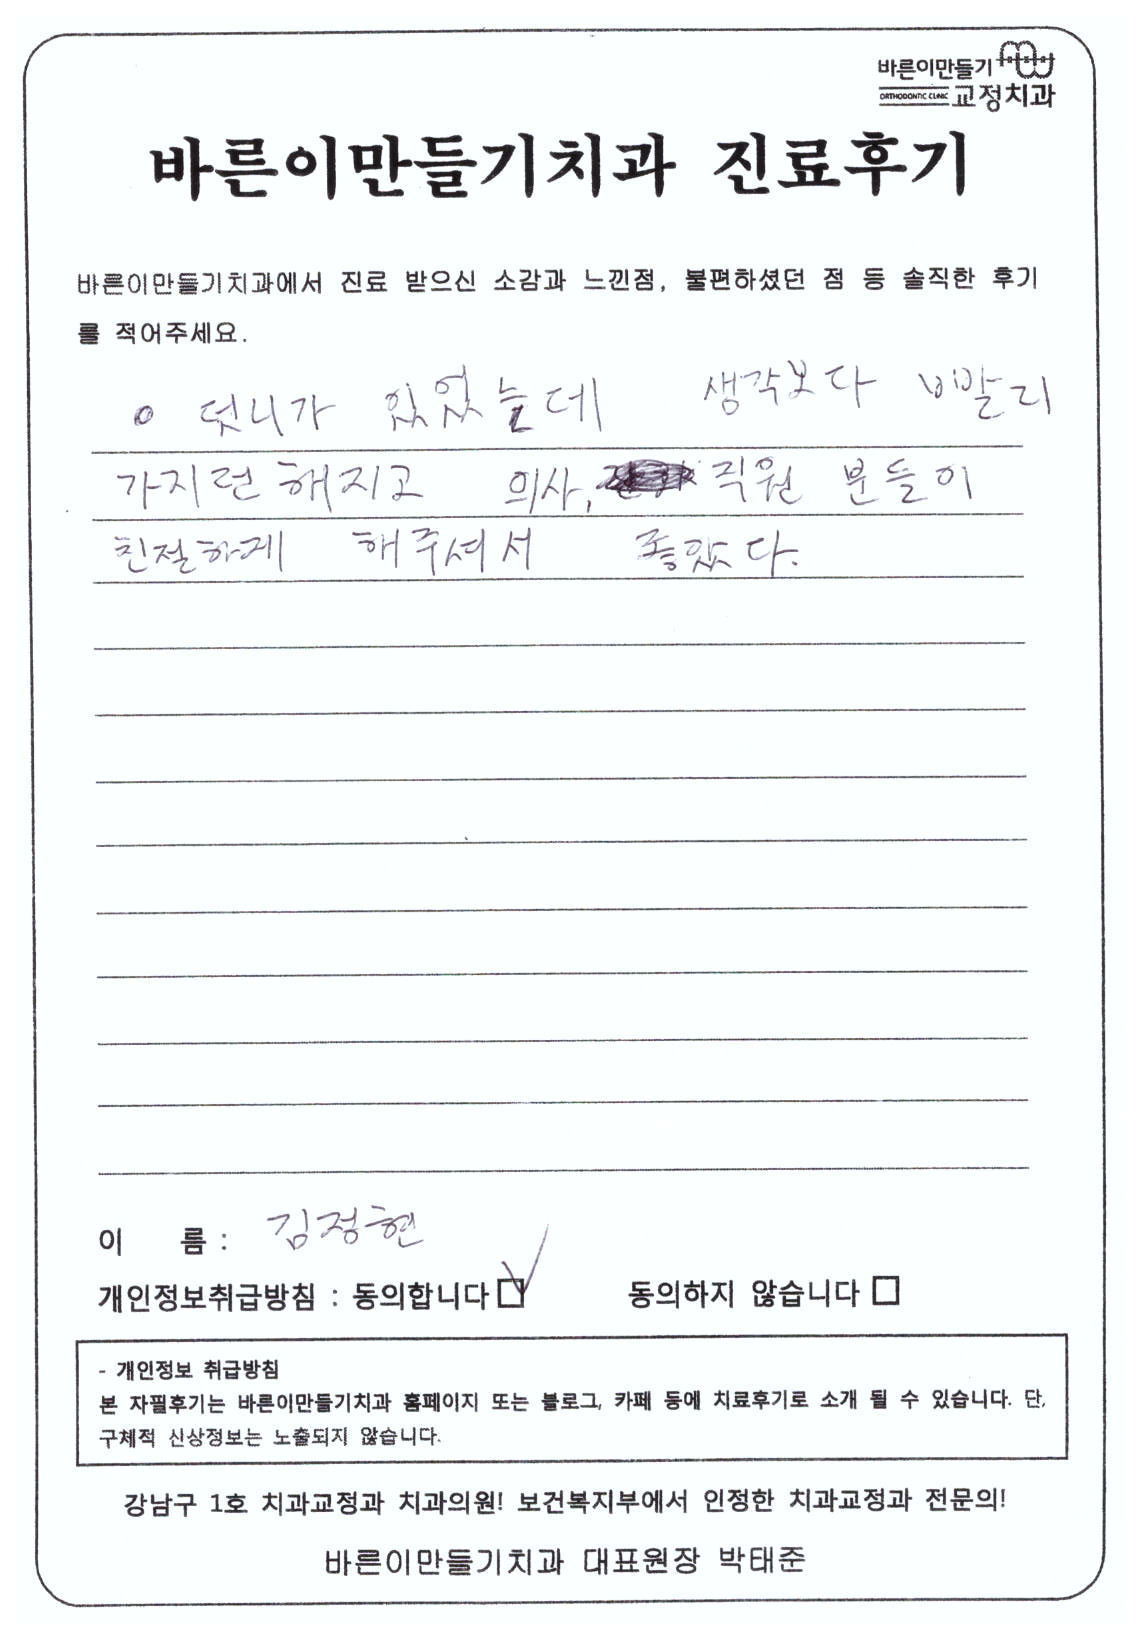 바른이만들기
ORTHODONTIC CLINIC 교정치과
바른이만들기치과 진료후기
바른이만들기치과에서 진료 받으신 소감과 느낀점, 불편하셨던 점 등 솔직한 후기
를 적어주세요.
o 덧니가 있었는데 생각보다 빨리
가지런해지고 의사, 직원 분들이
친절하게 해주셔서 좋았다.
이 름 : 김정현
개인정보취급방침 : 동의합니다 ☑ 동의하지 않습니다 □
- 개인정보 취급방침
본 자필후기는 바른이만들기치과 홈페이지 또는 블로그, 카페 등에 치료후기로 소개 될 수 있습니다. 단,
구체적 신상정보는 노출되지 않습니다.
강남구 1호 치과교정과 치과의원! 보건복지부에서 인정한 치과교정과 전문의!
바른이만들기치과 대표원장 박태준